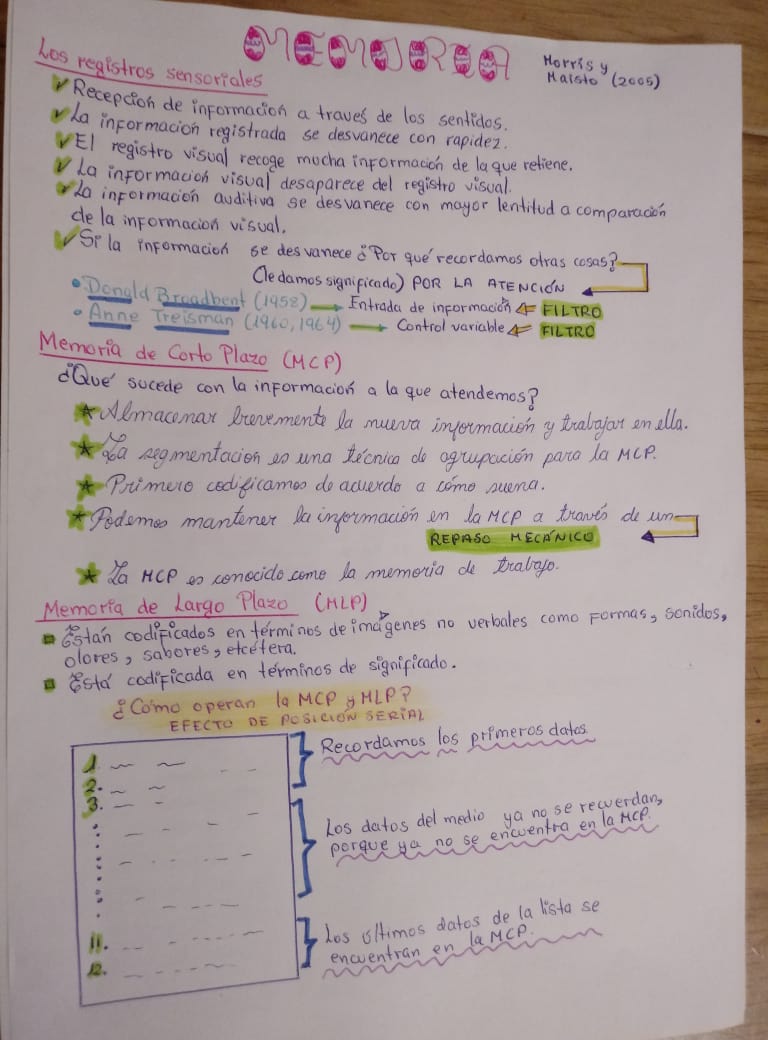 MEMORIA
Morris y
Maisto (2005)
Los registros sensoriales
Recepción de información a través de los sentidos.
La información registrada se desvanece con rapidez.
El registro visual recoge mucha información de la que retiene.
La información visual desaparece del registro visual.
La información auditiva se desvanece con mayor lentitud a comparación
de la información visual.
Si la información se desvanece ¿Por qué recordamos otras cosas?
(le damos significado) POR LA ATENCIÓN
Donald Broadbent (1958) → Entrada de información ⇐ FILTRO
Anne Treisman (1960, 1964) → Control variable ⇐ FILTRO
Memoria de Corto Plazo (MCP)
¿Qué sucede con la información a la que atendemos?
Almacenar brevemente la nueva información y trabajar en ella.
La segmentación es una técnica de agrupación para la MCP.
Primero codificamos de acuerdo a cómo suena.
Podemos mantener la información en la MCP a través de un
REPASO MECÁNICO
La MCP es conocido como la memoria de trabajo.
Memoria de Largo Plazo (MLP)
Están codificados en términos de imágenes no verbales como formas, sonidos,
olores, sabores, etcétera.
Está codificada en términos de significado.
¿Cómo operan la MCP y MLP?
EFECTO DE POSICIÓN SERIAL
1.
2.
3.
11.
12.
Recordamos los primeros datos.
Los datos del medio ya no se recuerdan,
porque ya no se encuentra en la MCP.
Los últimos datos de la lista se
encuentran en la MCP.